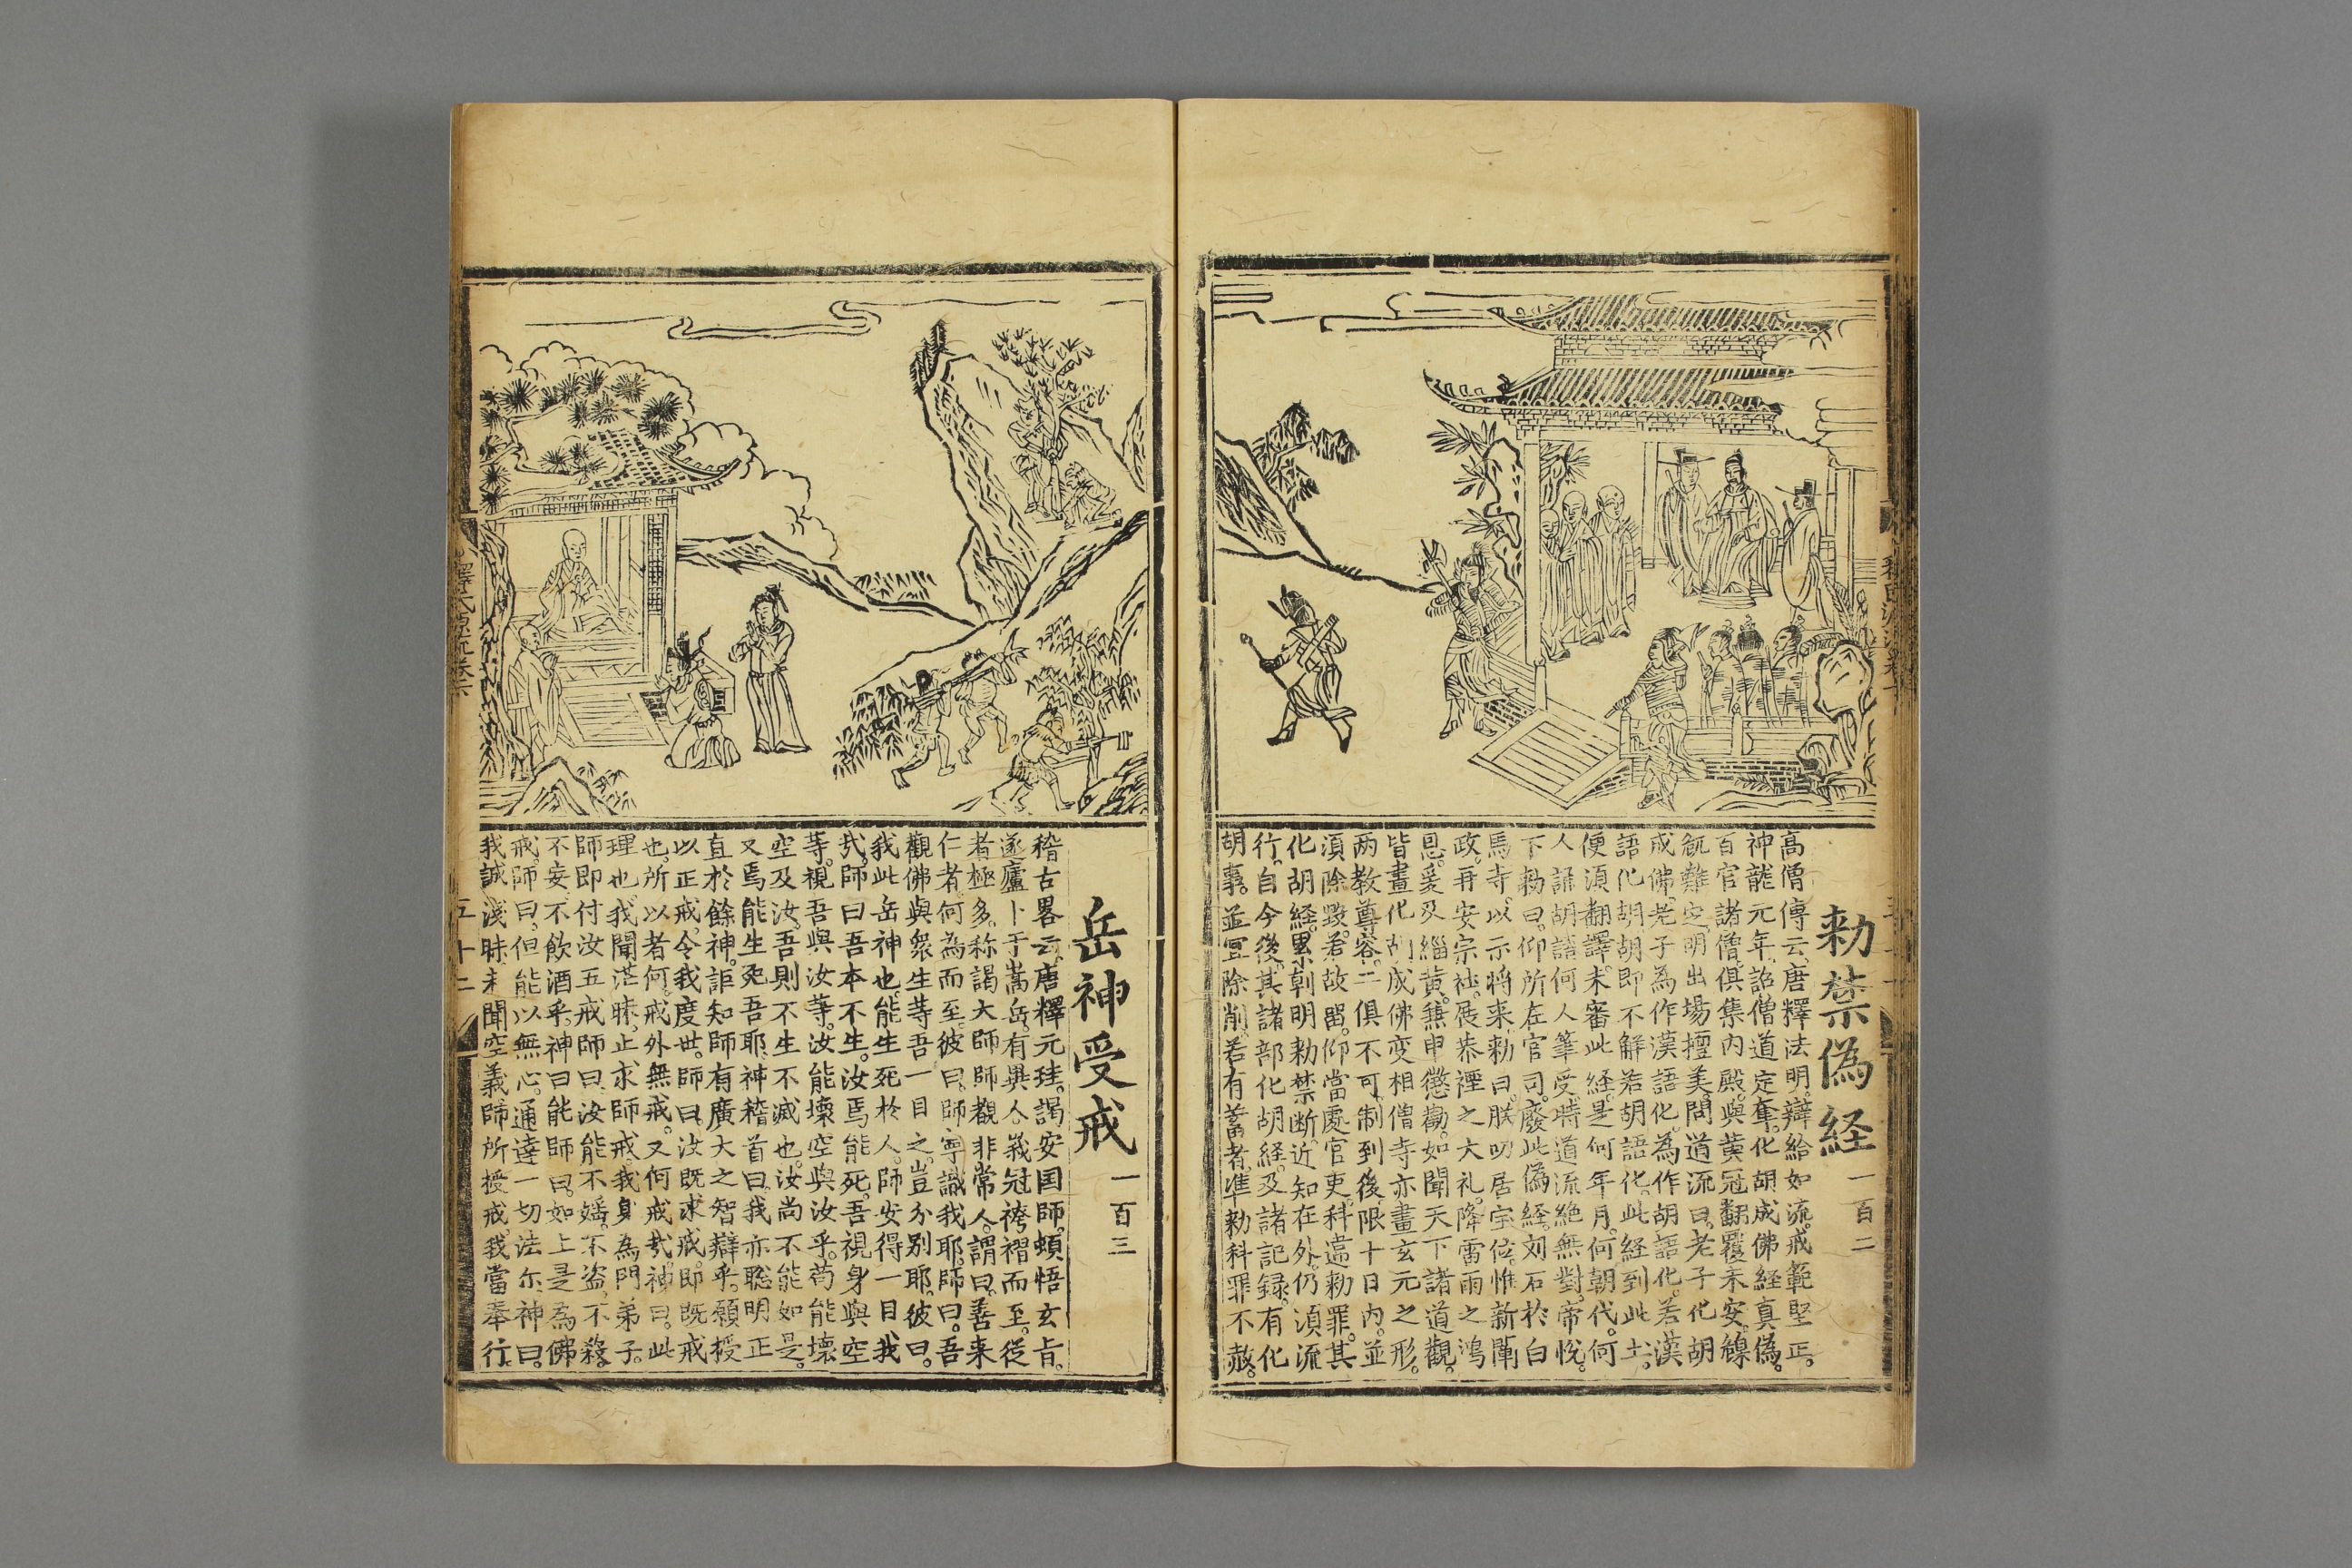 勅禁偽経 一百二
高僧傳云唐釋法明辯給如流戒範堅正
神龍元年詔僧道定奪化胡成佛経真偽
百官諸僧俱集內殿與黄冠翻覆未安
難定明出場擅美問道流曰老子化胡
成佛老子為作漢語化為作胡語化若漢
語化胡胡即不解若胡語化此経到此土
便湏翻譯未審此経是何年月何朝代何
人誦胡語何人筆受時道流絶無對帝悅
下勅曰仰所在官司廢此偽経刻石於白
馬寺以示將来勅曰朕叨居宝位惟新闡
政再安宗社展恭禋之大礼降雷雨之鴻
恩爰及緇黄兼申懲勸如聞天下諸道觀
皆畫化胡成佛变相僧寺亦畫玄元之形
两教尊容二俱不可制到後限十日內並
湏除毀若故留仰當處官吏科違勅罪其
化胡経累朝明勅禁断近知在外仍湏流
行自今後其諸部化胡経及諸記録有化
胡事並冝除削若有蓄者準勅科罪不赦
岳神受戒 一百三
稽古畧云唐釋元珪謁安国師頓悟玄旨
遂廬卜于嵩岳有異人峩冠袴褶而至從
者極多称謁大師師觀非常人謂曰善来
仁者何為而至彼曰師寧識我耶師曰吾
觀佛與衆生等吾一目之豈分別耶彼曰
我此岳神也能生死於人師安得一目我
㢤師曰吾本不生汝焉能死吾視身與空
等視吾與汝等汝能壊空與汝乎苟能壊
空及汝吾則不生不滅也汝尚不能如是
又焉能生死吾耶神稽首曰我亦聡明正
直於餘神詎知師有廣大之智辯乎願授
以正戒令我度世師曰汝既求戒即既戒
也所以者何戒外無戒又何戒㢤神曰此
理也我聞茫昧止求師戒我身為門弟子
師即付汝五戒師曰汝能不婬不盗不殺
不妄不飲酒乎神曰能師曰如上是為佛
戒師曰但能以無心通達一切法尓神曰
我誠淺昧未聞空義師所授戒我當奉行
釋氏源流卷六
五十二